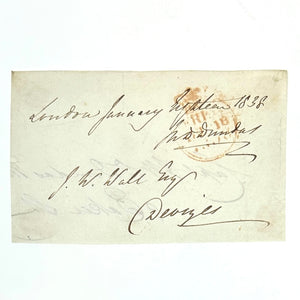 London January Eighteen 1838
Dundas
J. W. Wall Esq
Devizes